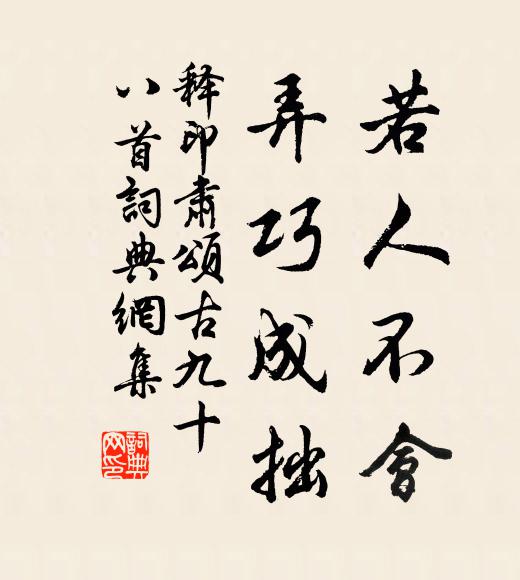 若人不會
弄巧成拙
释印肅頌古九十
八首詞典網集
詞典
网印